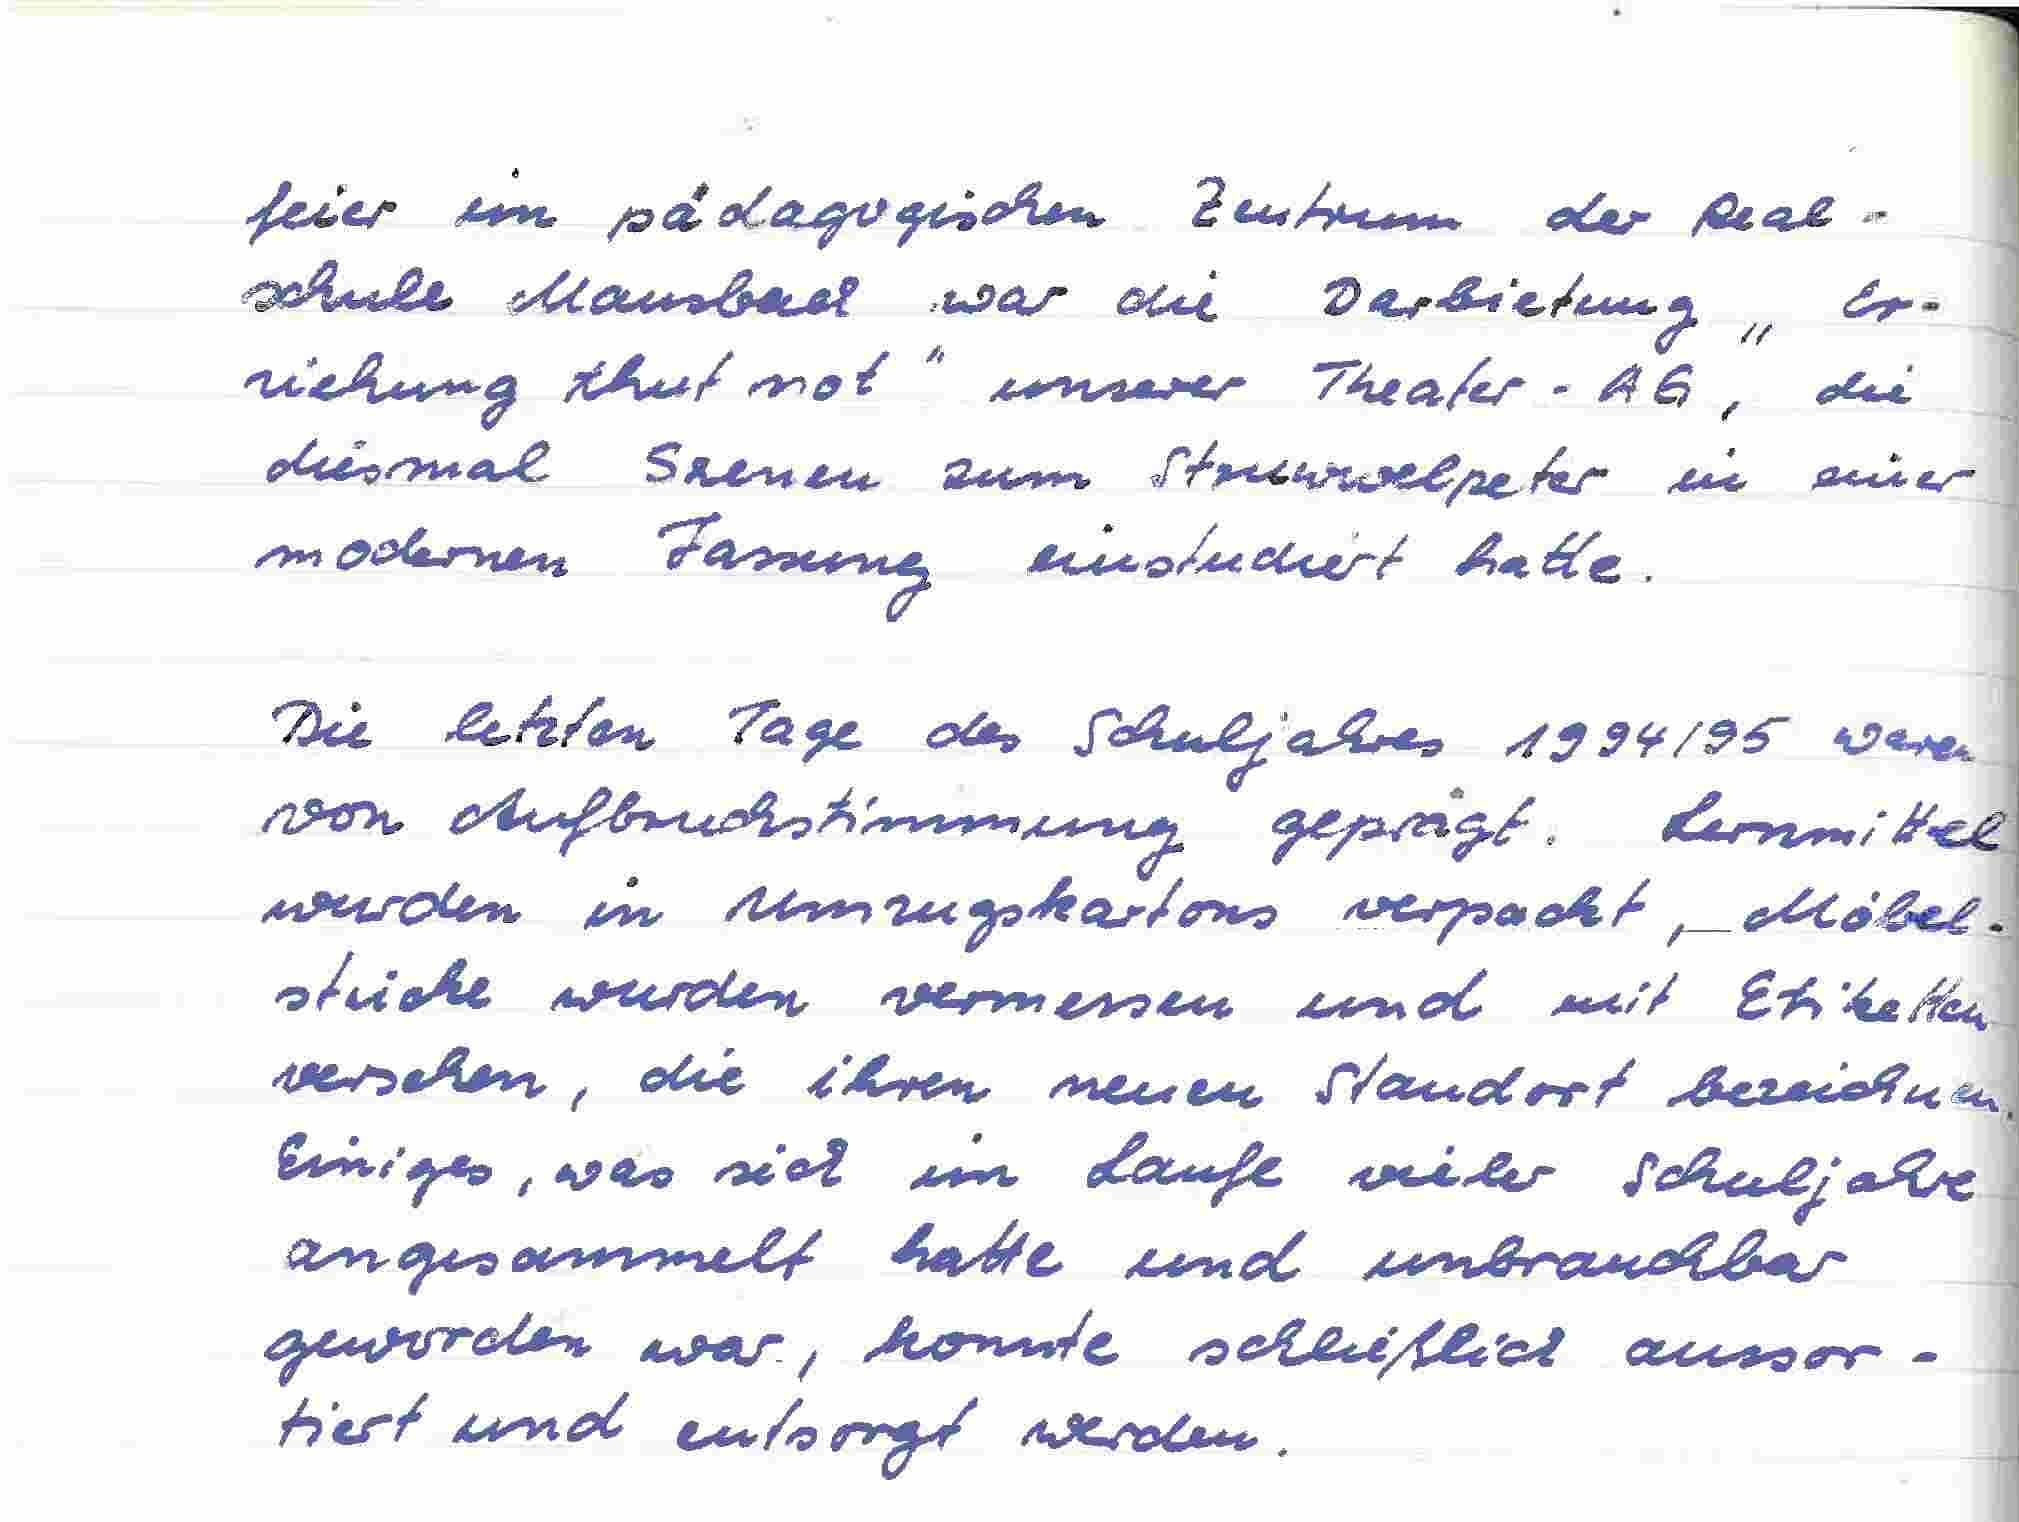 feier im pädagogischen Zentrum der Real-
schule Mausbach war die Darbietung „Er-
ziehung thut not" unserer Theater-AG, die
diesmal Szenen zum Struwwelpeter in einer
modernen Fassung einstudiert hatte.
Die letzten Tage des Schuljahres 1994/95 waren
von Aufbruchstimmung geprägt. Lernmittel
wurden in Umzugskartons verpackt, Möbel-
stücke wurden vermessen und mit Etiketten
versehen, die ihren neuen Standort bezeichnen.
Einiges, was sich im Laufe vieler Schuljahre
angesammelt hatte und unbrauchbar
geworden war, konnte schließlich aussor-
tiert und entsorgt werden.